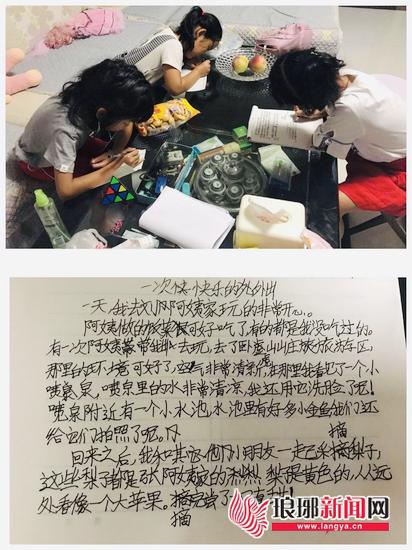 一次快乐的外出
一天,我去刘阿姨家玩的非常开心。
阿姨做的饭菜可好吃了有的都是我没吃过的。
有一次阿姨带我们去玩,去了卧虎山庄旅游区,
那里的环境可好了,空气非常清凉在那里我看见了一个小
喷泉,喷泉里的水非常清凉,我还用它洗脸了呢!
喷泉附近有一个小水池,水池里有好多小金鱼我们还
给它们拍照了呢。
摘
回来之后,我和其它小朋友一起去采摘梨子,
这些梨子都是张阿姨家的 梨是黄色的,从远
处看像一个大苹果。
摘
琅琊新闻网
www.langya.cn